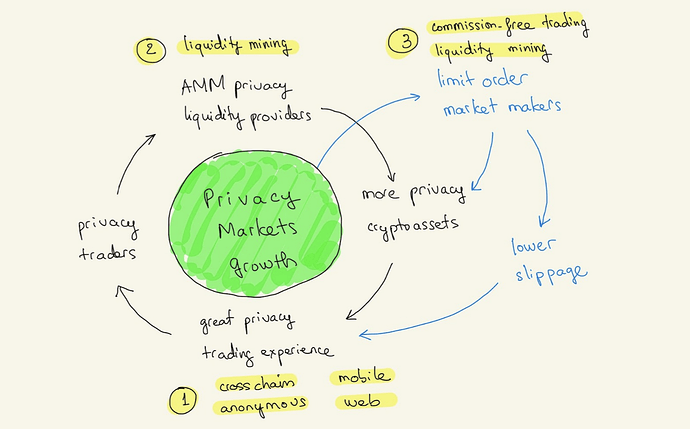 2 liquidity mining
AMM privacy
liquidity providers
3 commission-free trading
liquidity mining
limit order
market makers
privacy
traders
Privacy
Markets
Growth
more privacy
cryptoassets
lower
slippage
great privacy
trading experience
1 cross chain mobile
anonymous web